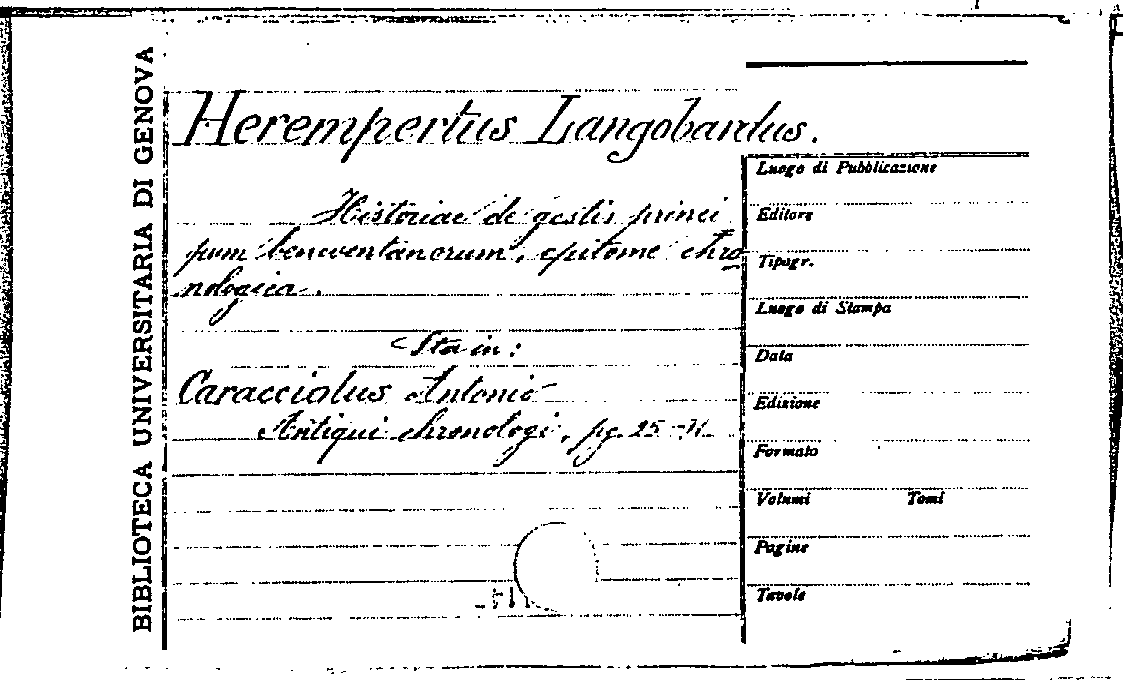 BIBLIOTECA UNIVERSITARIA DI GENOVA
Herempertus Langobardus.
Historiae de gestis princi
pum beneventanorum, epitome chro
nologica.
Sta in:
Caracciolus Antonio
Antiqui chronologi, pg. 25-71.
Luogo di Pubblicazione
Editore
Tipogr.
Luogo di Stampa
Data
Edizione
Formato
Volumi Tomi
Pagine
Tavole